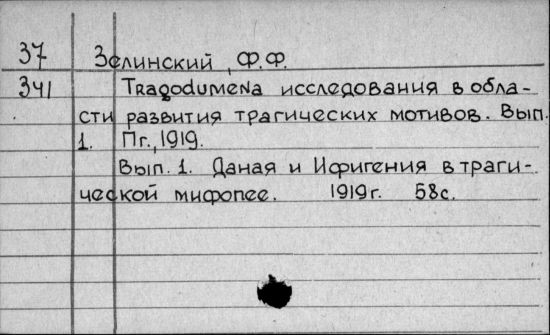 37 Зелинский, Ф.Ф.
341 Tragodumena исследования в обла-
сти развития трагических мотивов. Вып.
1. Пг., 1919.
Вып. 1. Даная и Ифигения в траги-
ческой мифопее. 1919г. 58с.